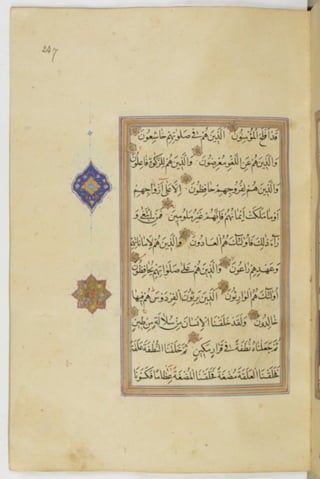 247
قَدْ أَفْلَحَ الْمُؤْمِنُونَ الَّذِينَ هُمْ فِي صَلَوتِهِمْ خَاشِعُونَ
وَالَّذِينَ هُمْ عَنِ اللَّغْوِ مُعْرِضُونَ وَالَّذِينَ هُمْ لِلزَّكَوةِ فَاعِلُونَ
وَالَّذِينَ هُمْ لِفُرُوجِهِمْ حَافِظُونَ إِلَّا عَلَى أَزْوَاجِهِمْ
أَوْ مَا مَلَكَتْ أَيْمَانُهُمْ فَإِنَّهُمْ غَيْرُ مَلُومِينَ فَمَنِ ابْتَغَى وَ
رَاءَ ذَلِكَ فَأُولَئِكَ هُمُ الْعَادُونَ وَالَّذِينَ هُمْ لِأَمَانَاتِهِمْ
وَعَهْدِهِمْ رَاعُونَ وَالَّذِينَ هُمْ عَلَى صَلَوَاتِهِمْ يُحَافِظُونَ
أُولَئِكَ هُمُ الْوَارِثُونَ الَّذِينَ يَرِثُونَ الْفِرْدَوْسَ هُمْ فِيهَا
خَالِدُونَ وَلَقَدْ خَلَقْنَا الْإِنْسَانَ مِنْ سُلَالَةٍ مِنْ طِينٍ
ثُمَّ جَعَلْنَاهُ نُطْفَةً فِي قَرَارٍ مَكِينٍ ثُمَّ خَلَقْنَا النُّطْفَةَ عَلَقَةً
فَخَلَقْنَا الْعَلَقَةَ مُضْغَةً فَخَلَقْنَا الْمُضْغَةَ عِظَامًا فَكَسَوْنَا